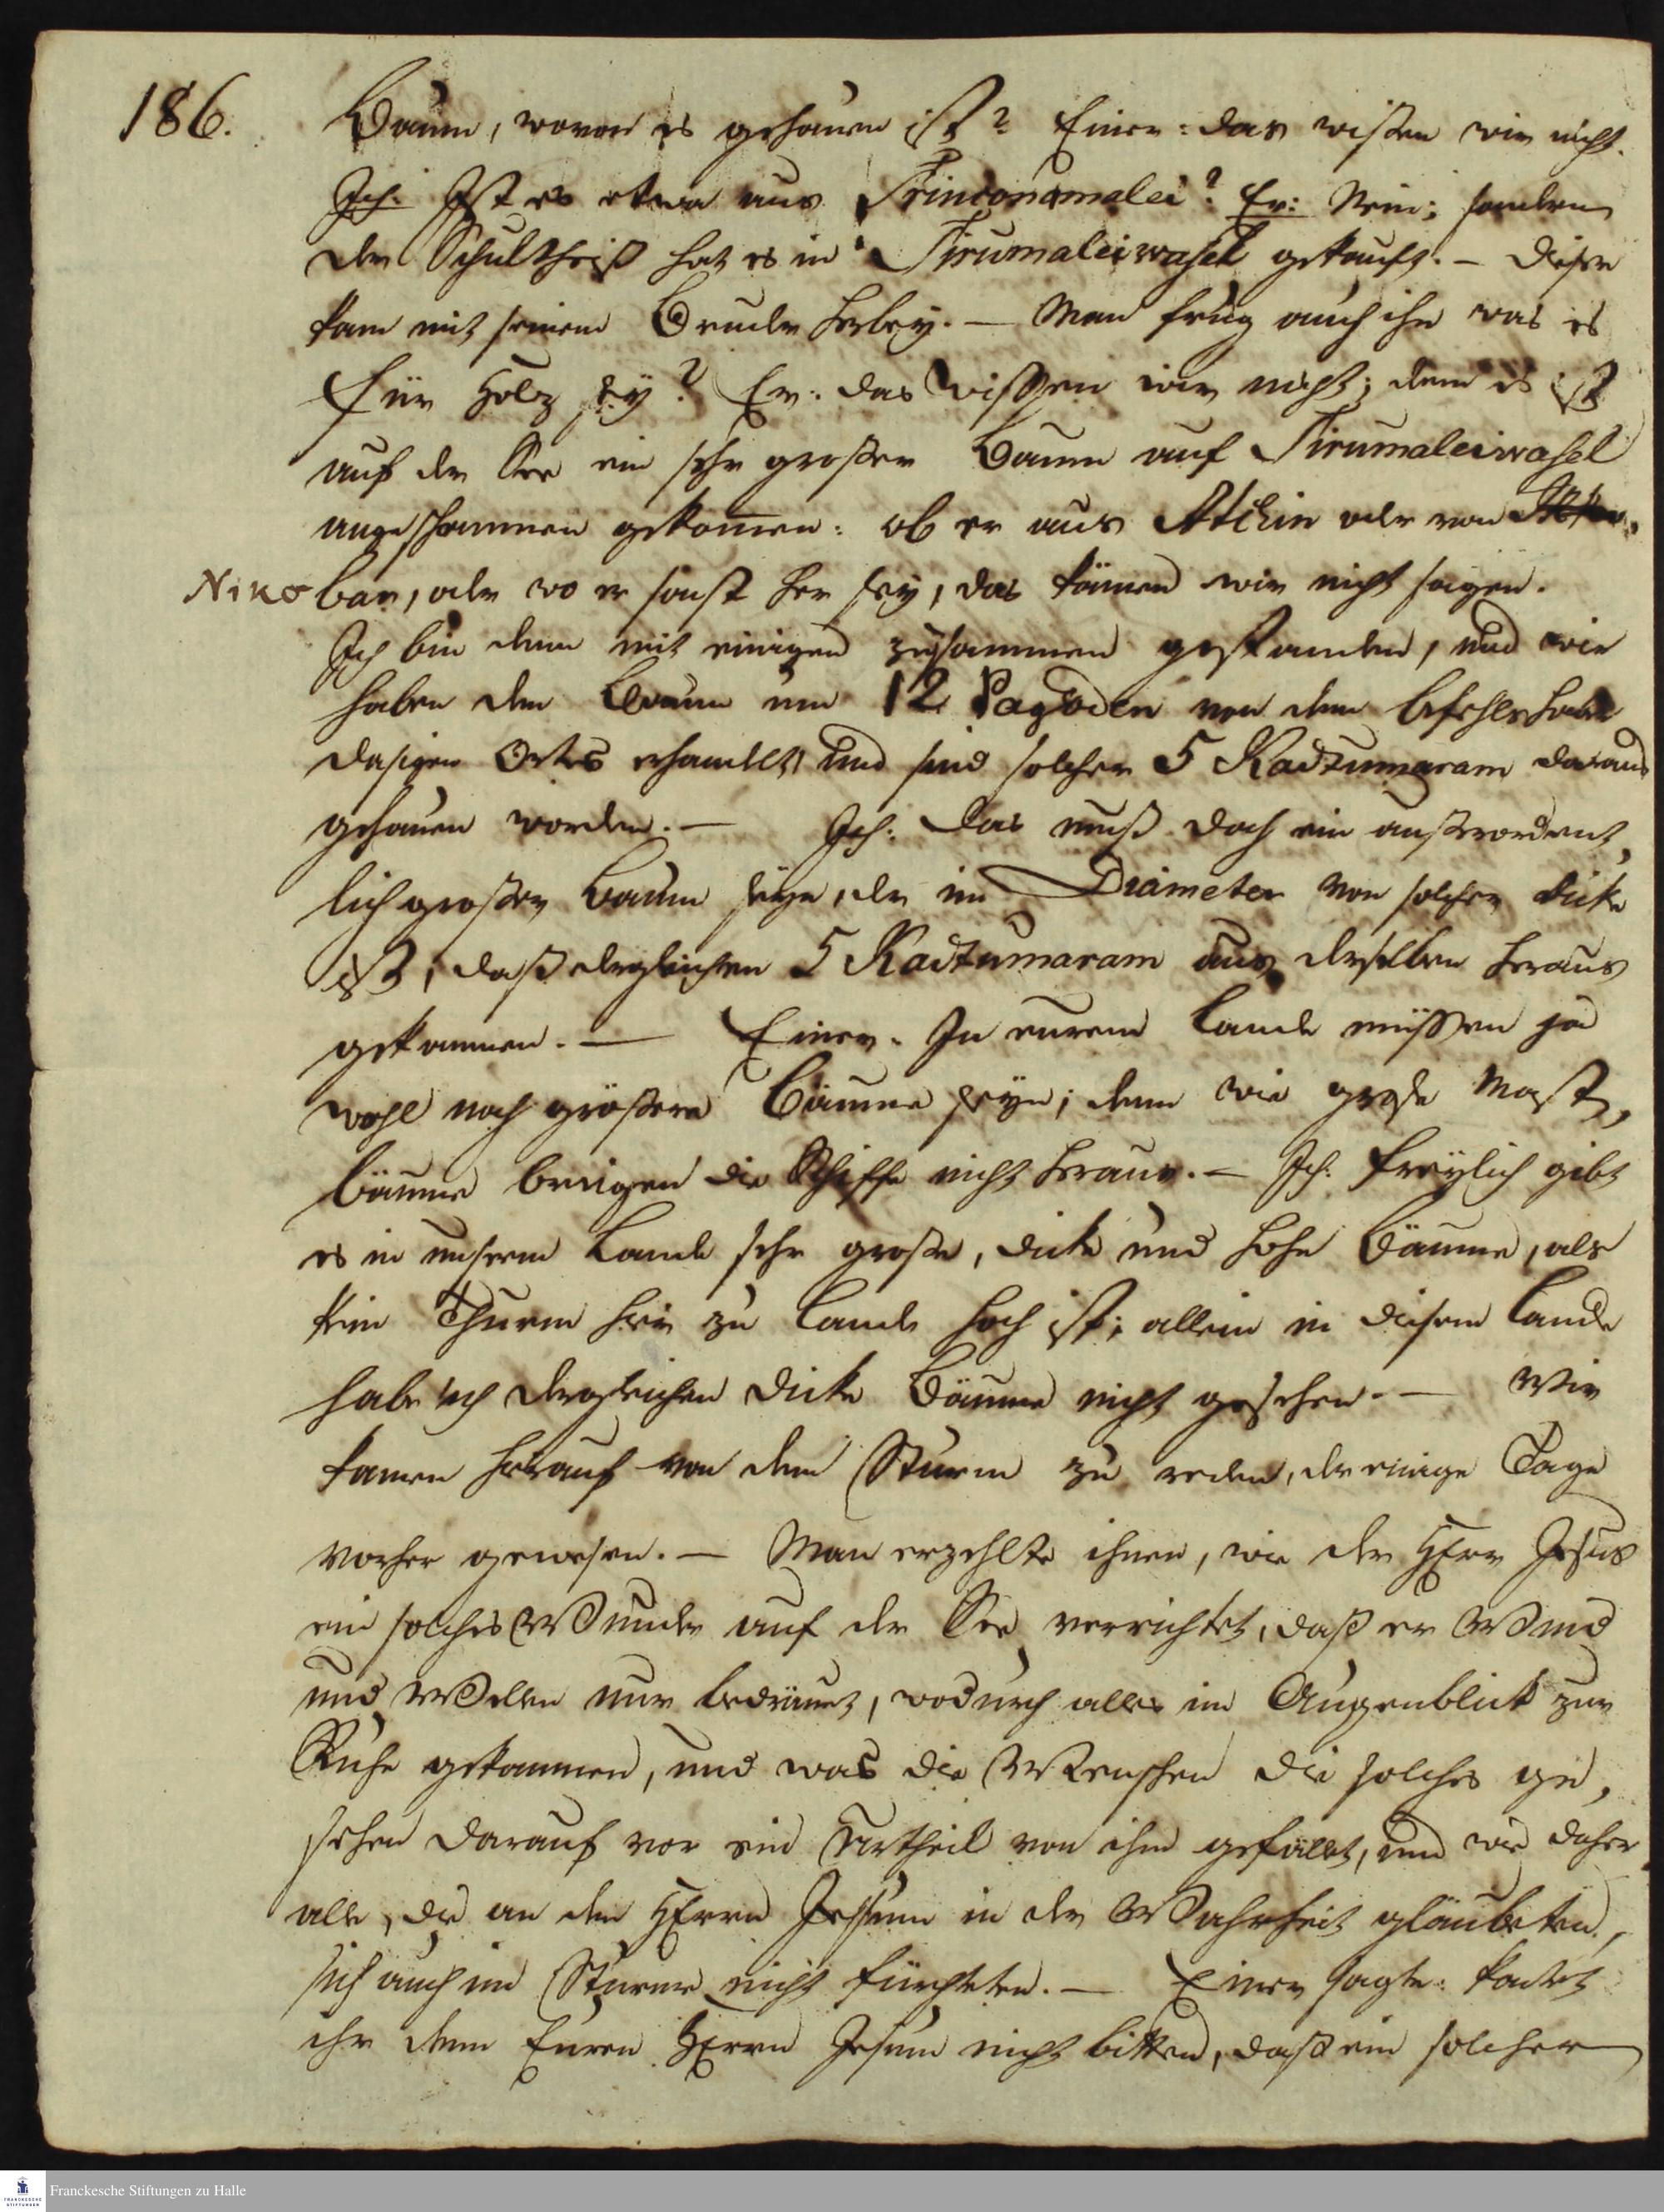 186.
Baum, wovon es gehauen ist? Einer: das wißen wir nicht.
Ich: Ist es etwa aus Trinconamalei? Er: Nein; sondern
der Schultheiß hat es in Tirumaleiwasel gekauft. – Dieser
kam mit seinem Bruder herbey. – Man frug auch ihn was es
für Holz sey? Er: das wißen wir nicht; denn es ist
auf der See ein sehr großer Baum auf Tirumaleiwasel
angeschwommen gekommen: ob er aus Atchin oder von
Nikobar, oder wo er sonst her sey, das können wir nicht sagen.
Ich bin denn mit einigen zusammen gestanden, und wir
haben den Baum um 12 Pagoden von dem Befehlshaber
dasigen Ortes erhandelt und sind solcher 5 Kattumaram daraus
gehauen worden. – Ich: Das muß doch ein außerordent,
lich großer Baum seyn, der im Diameter von solcher Dicke
ist, daß dergleichen 5 Kattumaram aus demselben heraus
gekommen. – Einer: In eurem Lande müßen ja
wohl noch größere Bäume seyn; denn wie große Mast,
bäume bringen die Schiffe nicht heraus. – Ich: Freylich gibt
es in unserm Lande sehr große, dicke und hohe Bäume, als
kein Thurm hier zu Lande hoch ist; allein in diesem Lande
habe ich dergleichen dicke Bäume nicht gesehen. – Wir
kamen hierauf von dem Sturm zu reden, der einige Tage
vorher gewesen. – Man erzehlte ihnen, wie der HErr Jesus
ein solches Wunder auf der See verrichtet, daß er Wind
und Wellen nur bedräuet, wodurch alles im Augenblick zur
Ruhe gekommen, und was die Menschen die solches ge,
sehen darauf vor ein Urtheil von ihm gefället, und wie daher
alle, die an den HErrn Jesum in der Wahrheit gläubeten,
sich auch im Sturme nicht fürchteten. – Einer sagte: Kontet
ihr denn Euren HErrn Jesum nicht bitten, daß ein solcher
Franckesche Stiftungen zu Halle
FRANCKESCHE
STIFTUNGEN